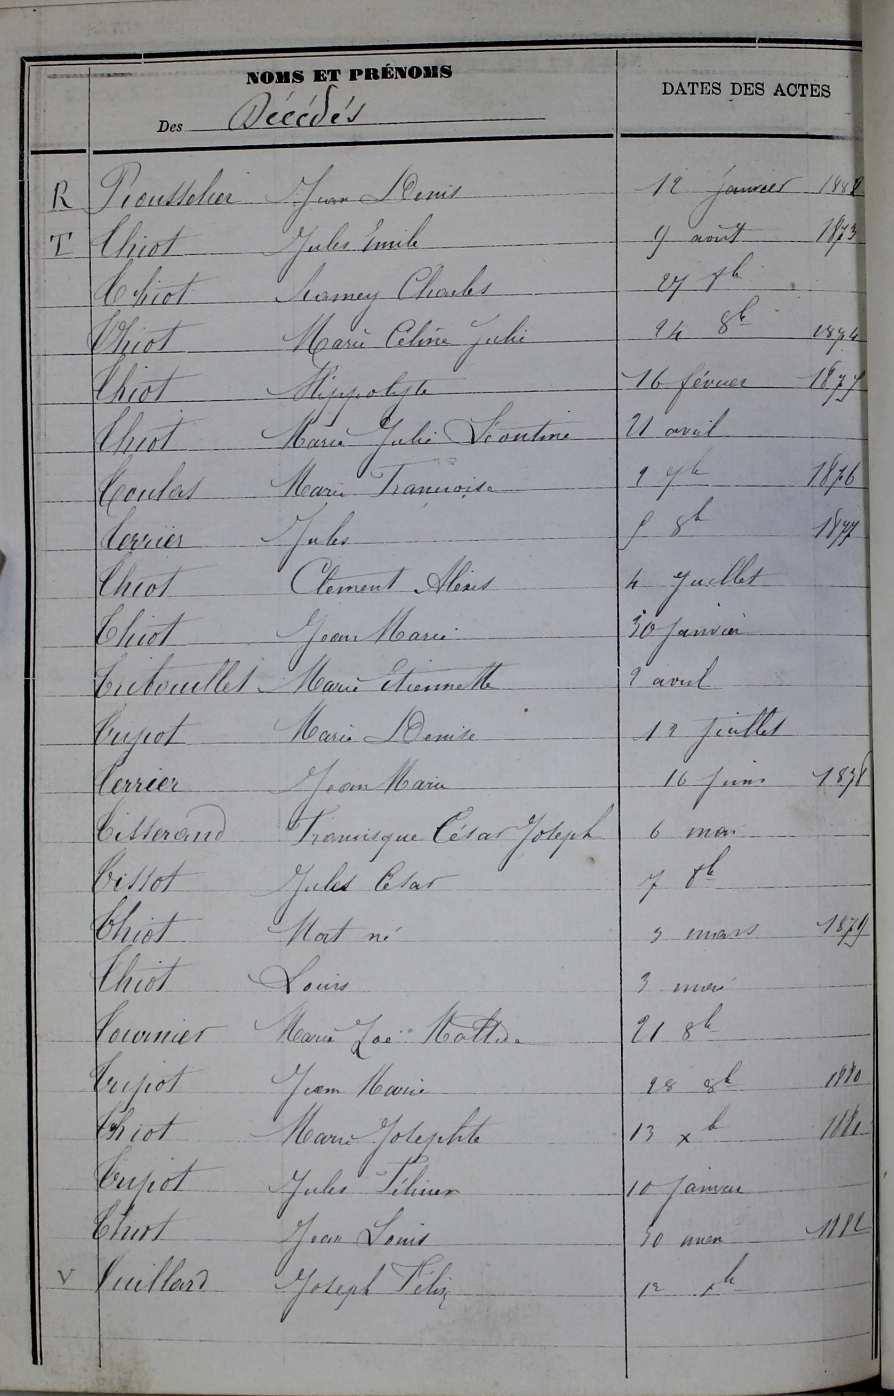 NOMS ET PRÉNOMS DATES DES ACTES
Des Décédés
R Rousselier Jean Denis 12 janvier 1882
T Thiot Jules Emile 9 août 1873
Thiot Ramey Charles 27 xb
Thiot Marie Céline Julie 24 8b 1874
Thiot Hippolyte 16 février 1875
Thiot Marie Julie Léontine 21 avril
Marie Francoise 2 1876
Terrier Jules 5 8b 1877
Thiot Clément Alexis 4 Juillet
Thiot Jean Marie 30 Janvier
Tritouillet Marie Etiennette 2 avril
Tripot Marie Denise 12 juillet
Terrier Jean Marie 16 juin 1878
Tisserand Francisque César Joseph 6 mai
Tissot Jules César 7 xb
Thiot Mort né 3 mars 1879
Thiot Louis 3 mai
Tournier Marie Zoë 21 8b
Tripot Jean Marie 28 8b 1880
Thiot Marie Josephte 13 xb 1881
Tripot Jules 10 janvier
Thiot Jean Louis 30 1882
V Vuillard Joseph Félix 12 xb